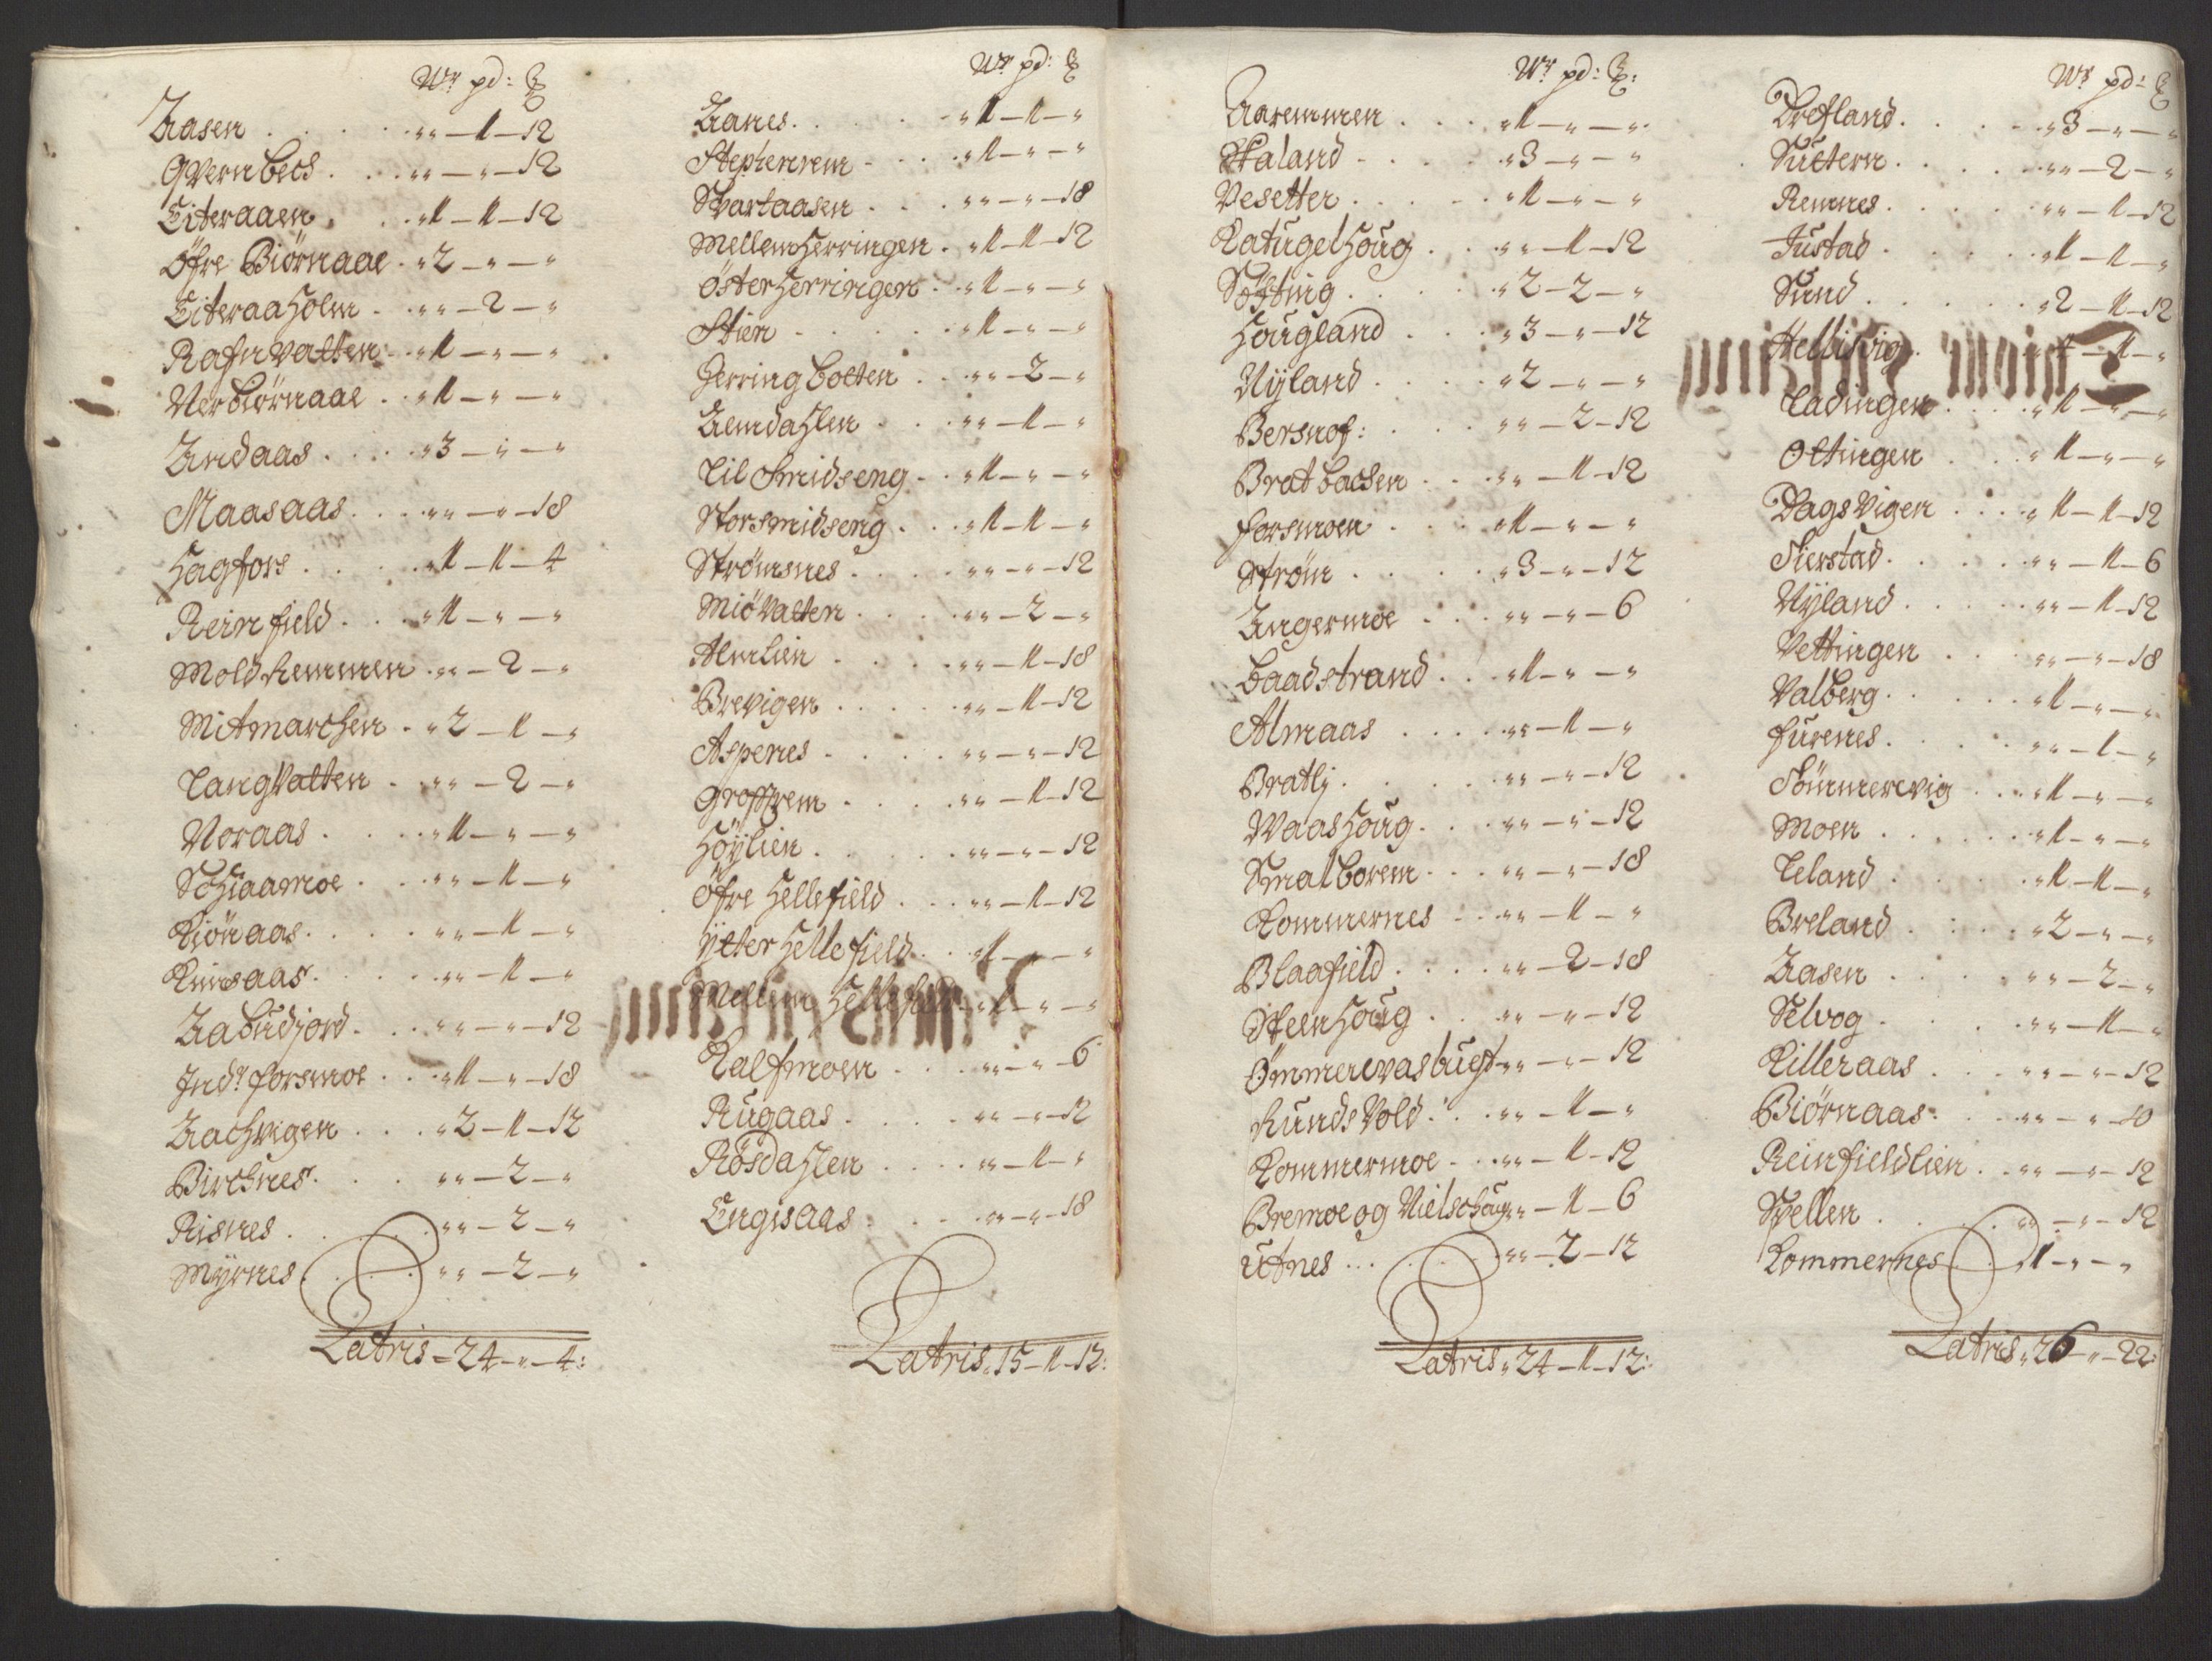 Wr pd: ℔
Aasen . . . . . „ „ — 1 — 12
Qvernbech . . . „ „ — „ — 12
Eiteraaen . . „ 1 — 1 — 12
Öfre Biörnaae . „ 2 — „ — „
Eiteraaholm . „ „ — 2 — „
Rafnvatten . „ 1 — „ — „
Nerbiörnaae . . „ 1 — „ — „
Andaas . . . . „ 3 — „ — „
Maasaas . . . . „ „ — „ — 18
Hagfors . . . . „ 1 — 1 — 4
Reinfield . . . „ 1 — „ — „
Moldremmen . „ „ — 2 — „
Mitmarchen . „ 2 — 1 — „
Langvatten . . „ „ — 2 — „
Noraas . . . . „ 1 — „ — „
Schiaamoe . . . „ „ — 1 — „
Kiönaas . . . . „ „ — 1 — „
Kinsaas . . . . „ „ — 1 — „
Aabudjord . . . „ „ — „ — 12
Indr forsmoe . . . „ 1 — „ — 18
Aachvigen . . . „ 2 — 1 — 12
Birchnes . . . „ „ — 2 — „
Risnes . . . . „ „ — 2 — „
Myrnes . . . . „ „ — 2 — „
Latris — 24 — „ — 4:
Wr pd: ℔
Aanes . . . . . „ 1 — 1 — „
Stephenrem . . . . „ 1 — „ — „
Svartaasen . . . „ „ — „ — 18
Mellemherringen . „ 1 — 1 — 12
Österherringen . . „ 1 — „ — „
Stien . . . . . „ 1 — „ — „
Herringbotten . . . „ „ — 2 — „
Aemdahlen . . . „ „ — 1 — „
Lilsmidseng . . „ 1 — „ — „
Storsmidseng . . . „ 1 — 1 — „
Strömsnes . . . . „ „ — „ — 12
Miövatten . . . . „ „ — 2 — „
Almlien . . . . „ „ — 1 — 18
Brevigen . . . . . „ „ — 1 — 12
Aspenes . . . . . „ „ — „ — 12
Groffrem . . . . „ „ — 1 — 12
Höylien . . . . . „ „ — „ — 12
Öfre Hellefield . . . „ „ — 1 — 12
Ytter Hellefield . . „ 1 — „ — „
Mellem Hellefield . „ 1 — „ — „
Kalfmoen . . . „ „ — „ — 6
Rugaas . . . . „ „ — „ — 12
Rösdahlen . . . . „ „ — 1 — „
Engisaas . . . . „ „ — „ — 18
Latris „ 15 — 1 — 12:
Wr pd: ℔:
Aaremmen . . . „ 1 — „ — „
Staland . . . . „ 3 — „ — „
Vesetter . . . . . „ 1 — „ — „
Katugelhoug . . . „ „ — 1 — 12
Söfting . . . . . „ 2 — 2 — „
Hougland . . . „ 3 — „ — 12
Nyland . . . . „ 2 — „ — „
Bersnof: . . . . „ „ — 2 — 12
Bratbachen . . . „ „ — 1 — 12
forsmoen . . . „ 1 — „ — „
Ström . . . . . „ 3 — „ — 12
Angermoe . . . „ „ — „ — 6
Baadstrand . . . „ 1 — „ — „
Almaas . . . . „ „ — 1 — „
Bratli . . . . . „ „ — „ — 12
Waashoug . . . „ „ — „ — 12
Smalborem . . . „ „ — „ — 18
Kommernes . . „ „ — 1 — „
Blaafield . . . . „ „ — 2 — 18
Steenhoug . . . „ „ — „ — 12
Ömmervasbugt „ „ — „ — 12
Hundsvold . . . „ „ — 1 — „
Kommermoe . . „ „ — 1 — 12
Bremoe og Nielschaug „ „ — 1 — 6
Utnes . . . . . „ „ — 2 — 12
Latris „ 24 — 1 — 12:
Wr pd: ℔
Drefland . . . . . „ 3 — „ — „
Suttern . . . . . „ „ — 2 — „
Remnes . . . . . „ „ — 1 — 12
Justad . . . . . „ 1 — 1 — „
Sund . . . . . „ 2 — 1 — 12
Hellisvig . . . „ 1 — 1 — „
Ladingen . . . . „ 1 — „ — „
Ottingen . . . „ 1 — „ — „
Dagsvigen . . . . „ 1 — 1 — 12
Sierstad . . . . . „ „ — 1 — 6
Nyland . . . . . „ „ — 1 — 12
Vettingen . . . „ „ — „ — 18
Valberg . . . . . „ 1 — „ — „
furenes . . . . . „ „ — 1 — „
Sömmerevig . . . „ 1 — „ — „
Moen . . . . . „ 1 — „ — „
Leland . . . . „ 1 — 1 — „
Breland . . . . „ 2 — „ — „
Aasen . . . . . „ „ — 2 — „
Selvog . . . . „ „ — 1 — „
Killeraas . . . . „ „ — „ — 12
Biörnaas . . . . „ „ — „ — 10
Reinfieldlien . . „ „ — „ — 12
Spellen . . . . . „ „ — „ — 12
Kommernes . . „ 1 — „ — „
Latris „ 26 — „ — 22: